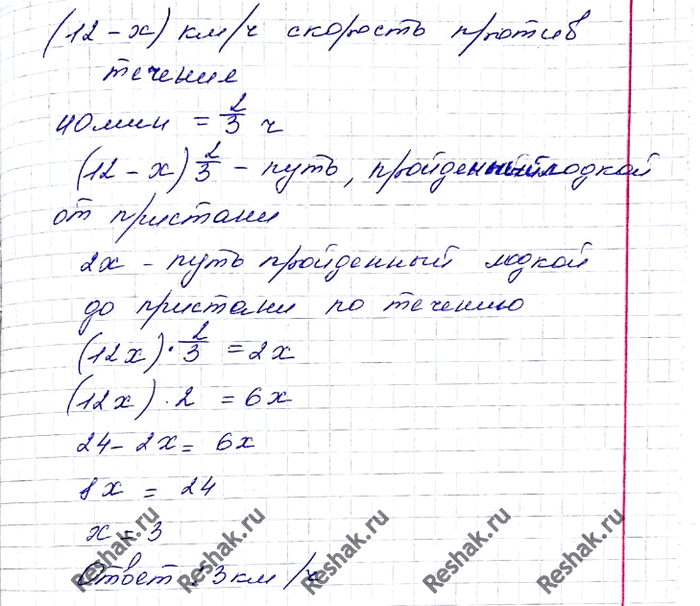 (12 - x) км/ч скорость против
течение
40 мин = 2/3 ч
(12 - x) 2/3 - путь, пройденный лодкой
от пристани
2x - путь пройденный лодкой
до пристани по течению
(12x) · 2/3 = 2x
(12x) · 2 = 6x
24 - 2x = 6x
8x = 24
x = 3
Ответ: 3 км/ч
Reshak.ru Reshak.ru Reshak.ru Reshak.ru Reshak.ru